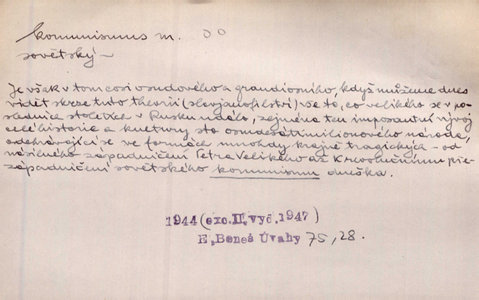 komunismus m.
sovětský –
Je však v tom cosi osudového a grandiosního, když můžeme dnes
vidět skrze tuto theorii (slavjanofilství) vše to, co velikého se v po-
sledních stoletích v Rusku událo, zejména ten imposantní vývoj
celé historie a kultury sto osmdesátimilionového národa,
odehrávající se ve formách mnohdy krajně tragických – od
násilného západničení Petra Velikého až k revolučnímu
západničení sovětského komunismu dneška.
1944 (exc.II,vyč.1947)
E.Beneš Úvahy 75, 28.